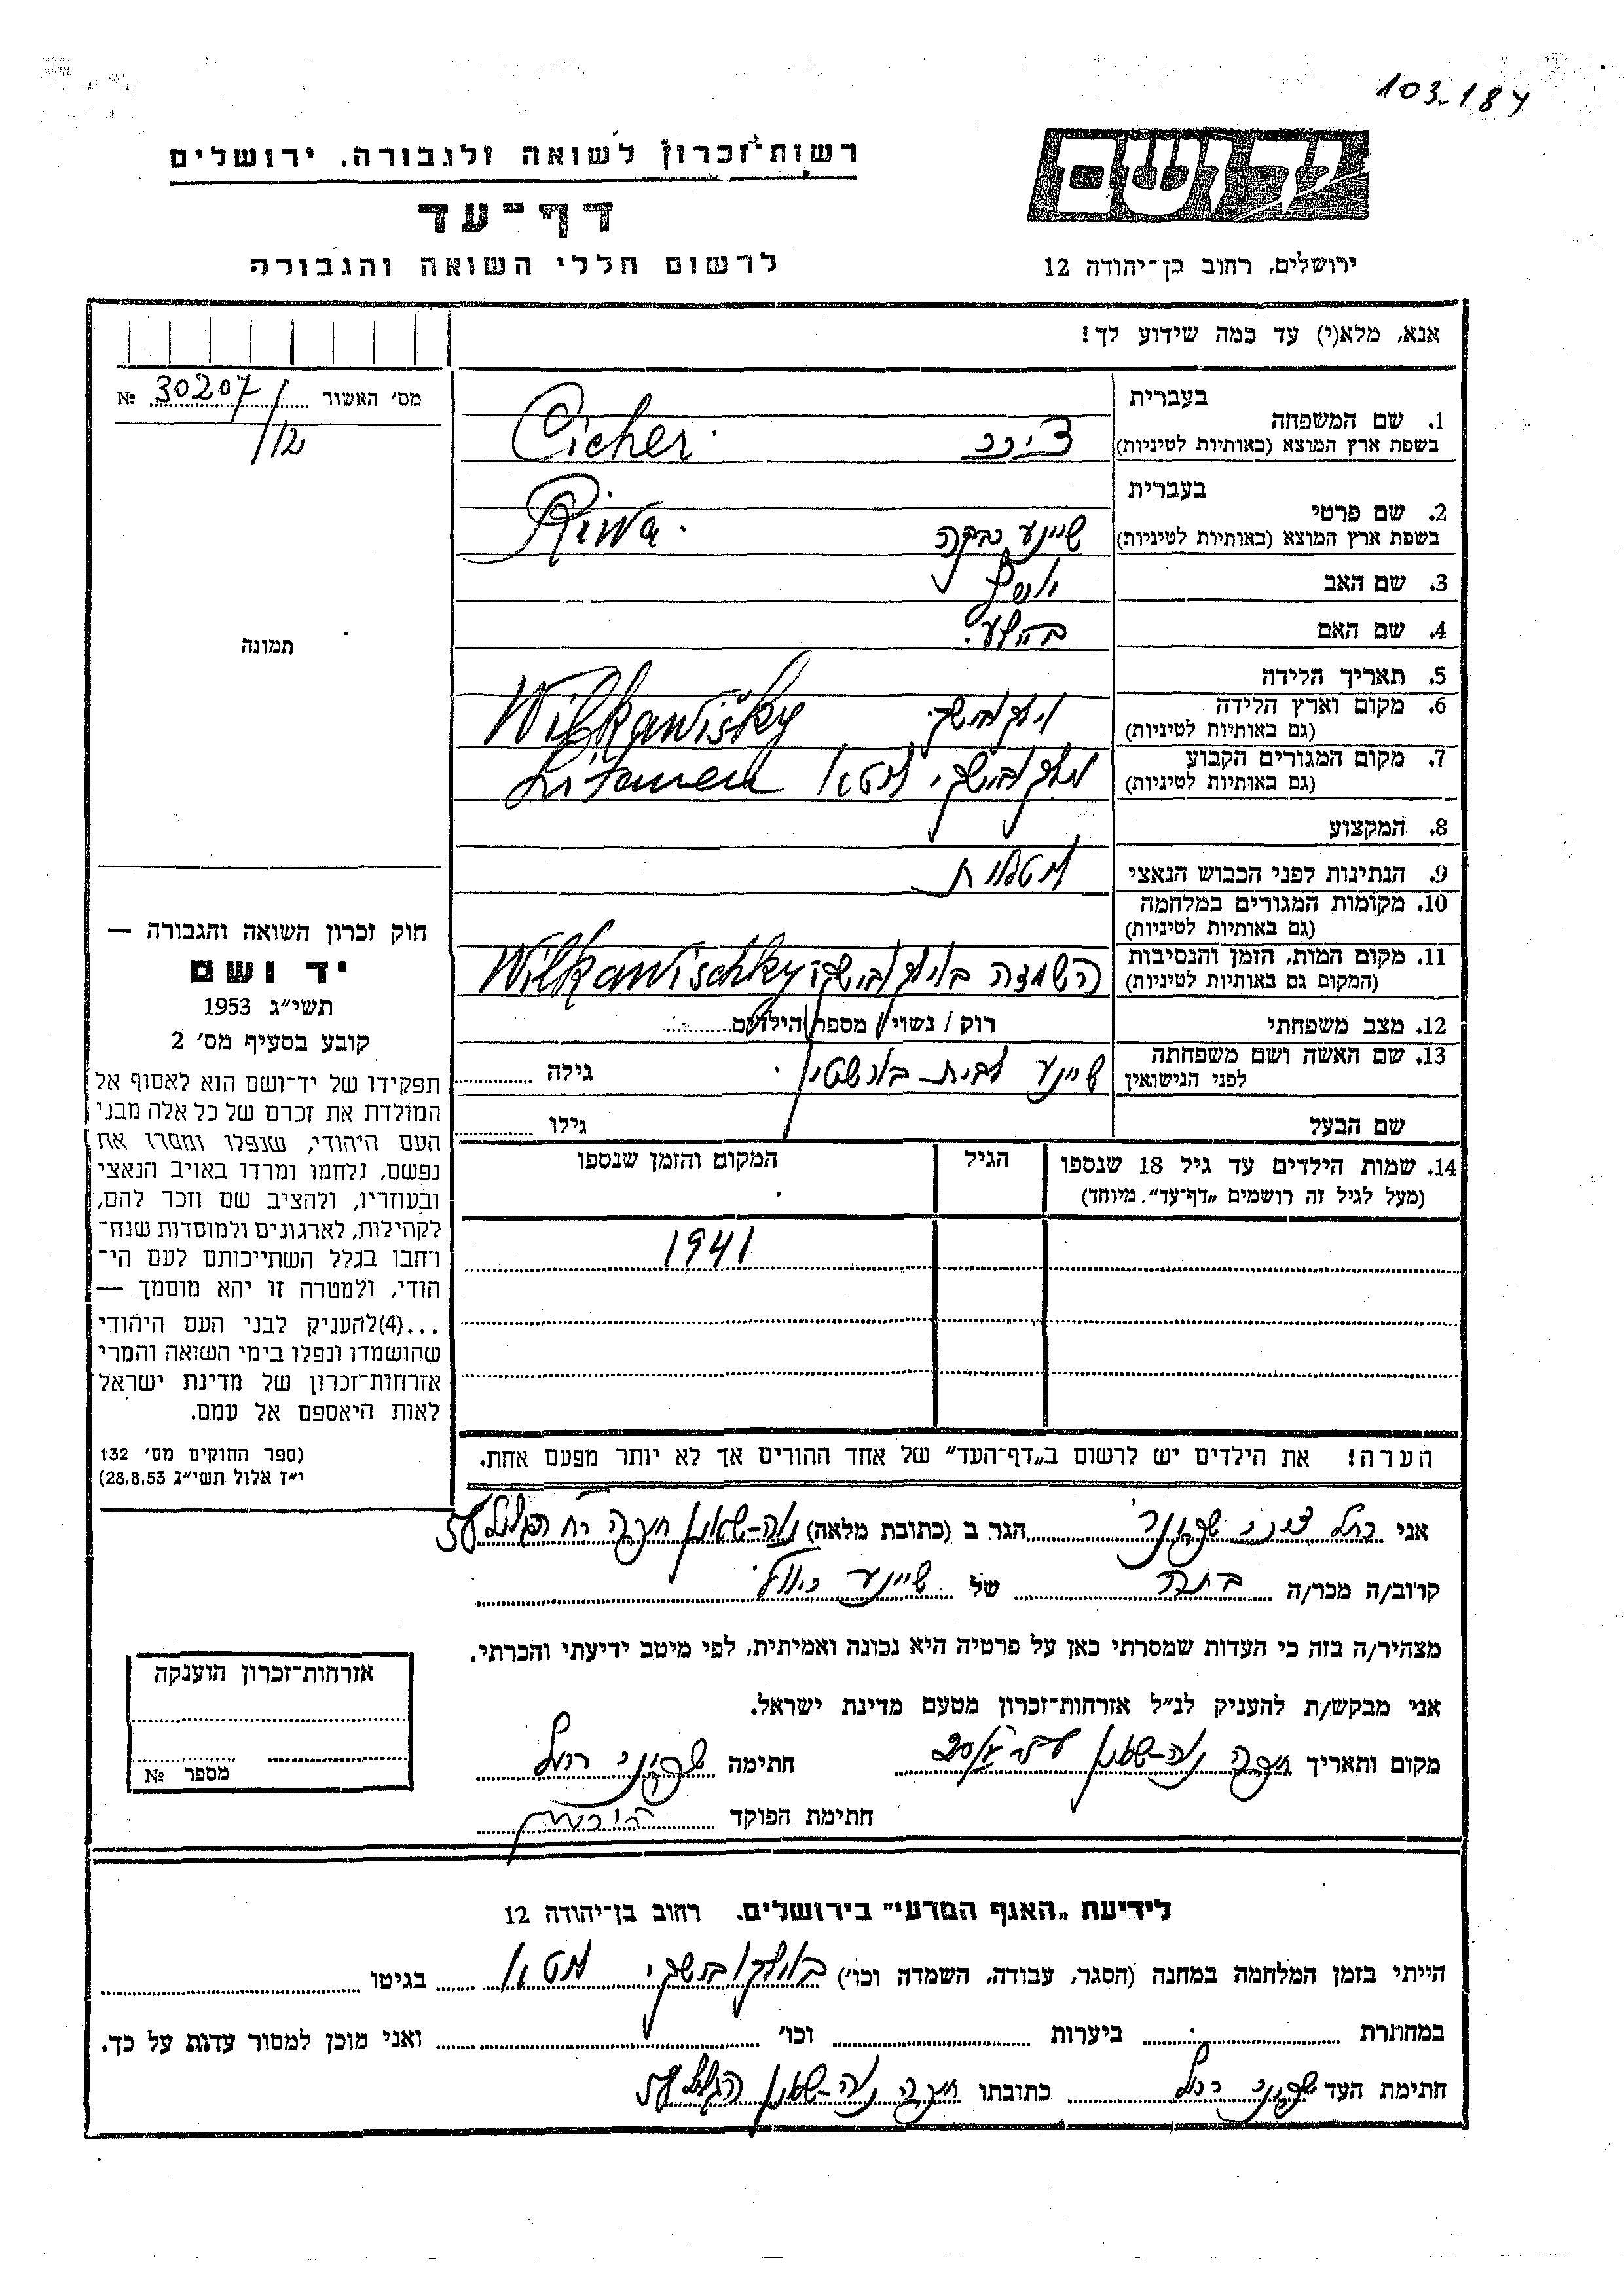 103-184
יד ושם
רשות־זכרון לשואה ולגבורה, ירושלים
דף־עד
לרשום חללי השואה והגבורה
ירושלים, רחוב בן־יהודה 12
אנא, מלא(י) עד כמה שידוע לך!
מס' האשור 30207/12 №
תמונה
בעברית
1. שם המשפחה
בשפת ארץ המוצא (באותיות לטיניות)
Cicher
בעברית
2. שם פרטי
בשפת ארץ המוצא (באותיות לטיניות) שיינע רבקה
Riwa
3. שם האב יוסף
4. שם האם
5. תאריך הלידה
6. מקום וארץ הלידה
(גם באותיות לטיניות)
Wilkawišky
7. מקום המגורים הקבוע
(גם באותיות לטיניות)
ליטא Litauen
8. המקצוע
9. הנתינות לפני הכבוש הנאצי
10. מקומות המגורים במלחמה
(גם באותיות לטיניות)
11. מקום המות, הזמן והנסיבות
(המקום גם באותיות לטיניות)
השמדה Wilkawischky
12. מצב משפחתי רוק / נשוי / מספר הילדים
13. שם האשה ושם משפחתה
לפני הנישואין
שיינע לבית גילה
שם הבעל גילו
14. שמות הילדים עד גיל 18 שנספו
(מעל לגיל זה רושמים „דף־עד״ מיוחד)
הגיל
המקום והזמן שנספו
1941
הערה! את הילדים יש לרשום ב„דף־העד״ של אחד ההורים אך לא יותר מפעם אחת.
חוק זכרון השואה והגבורה —
יד ושם
תשי״ג 1953
קובע בסעיף מס' 2
תפקידו של יד־ושם הוא לאסוף אל
המולדת את זכרם של כל אלה מבני
העם היהודי, שנפלו ומסרו את
נפשם, נלחמו ומרדו באויב הנאצי
ובעוזריו, ולהציב שם וזכר להם,
לקהילות, לארגונים ולמוסדות שנח־
רחבו בגלל השתייכותם לעם הי־
הודי, ולמטרה זו יהא מוסמך —
...(4)להעניק לבני העם היהודי
שהושמדו ונפלו בימי השואה והמרי
אזרחות־זכרון של מדינת ישראל
לאות היאספם אל עמם.
(ספר החוקים מס' 132
י״ז אלול תשי״ג 28.8.53)
אני רחל הגר ב (כתובת מלאה) נוה-שאנן חיפה רח הגליל 58
קרוב/ה מכר/ה בתה של שיינע
מצהיר/ה בזה כי העדות שמסרתי כאן על פרטיה היא נכונה ואמיתית, לפי מיטב ידיעתי והכרתי.
אני מבקש/ת להעניק לנ״ל אזרחות־זכרון מטעם מדינת ישראל.
מקום ותאריך חיפה נוה-שאנן חתימה רחל
חתימת הפוקד
אזרחות־זכרון הוענקה
מספר №
לידיעת „האגף המדעי״ בירושלים, רחוב בן־יהודה 12
הייתי בזמן המלחמה במחנה (הסגר, עבודה, השמדה וכו') ליטא בגיטו
במחתרת ביערות וכו' ואני מוכן למסור עדות על כך.
חתימת העד רחל כתובתו חיפה נוה-שאנן הגליל 58